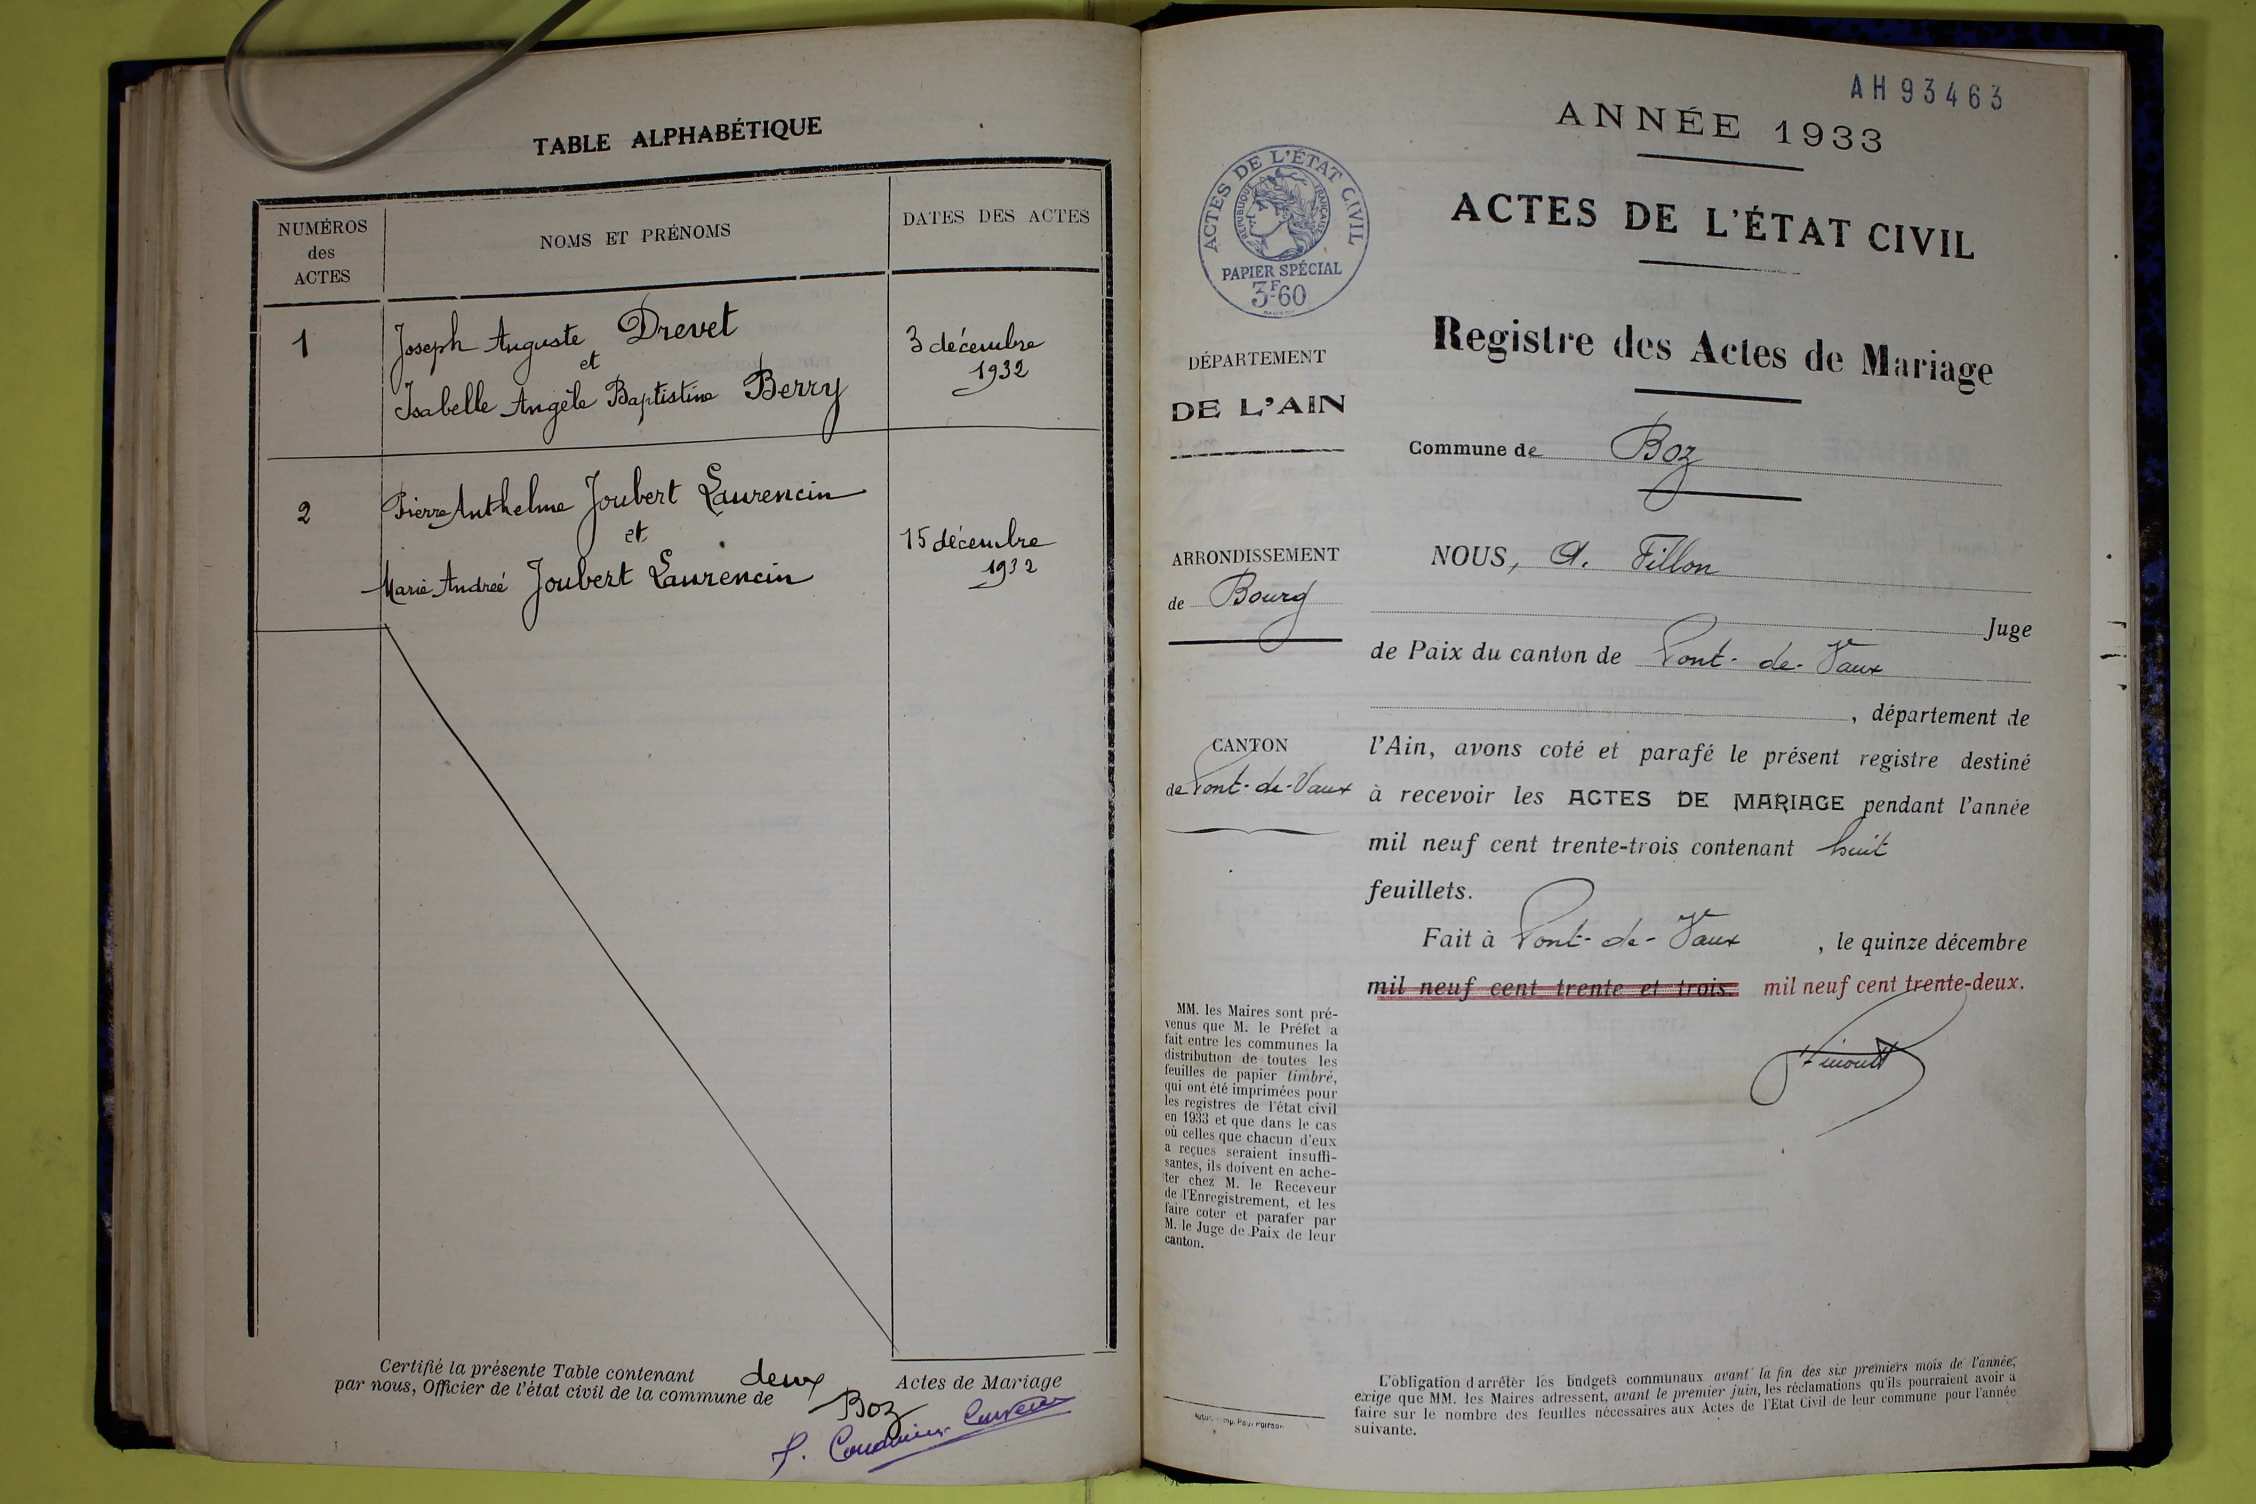 TABLE ALPHABÉTIQUE
NUMÉROS
des
ACTES
NOMS ET PRÉNOMS
DATES DES ACTES
1
Joseph Auguste Drevet
et
Isabelle Angèle Baptistine Berry
3 décembre
1932
2
Pierre Anthelme Joubert Laurencin
et
Marie Andreé Joubert Laurencin
15 décembre
1932
Certifié la présente Table contenant deux Actes de Mariage
par nous, Officier de l'état civil de la commune de Boz
AH93463
ANNÉE 1933
ACTES DE L'ÉTAT CIVIL
RÉPUBLIQUE FRANÇAISE
PAPIER SPÉCIAL
3F60
ACTES DE L'ÉTAT CIVIL
Registre des Actes de Mariage
DÉPARTEMENT
DE L'AIN
Commune de Boz
ARRONDISSEMENT
de Bourg
CANTON
de Pont-de-Vaux
NOUS, A. Fillon
Juge
de Paix du canton de Pont-de-Vaux
, département de
l'Ain, avons coté et parafé le présent registre destiné
à recevoir les ACTES DE MARIAGE pendant l'année
mil neuf cent trente-trois contenant huit
feuillets.
Fait à Pont-de-Vaux, le quinze décembre
mil neuf cent trente et trois. mil neuf cent trente-deux.
MM. les Maires sont pré-
venus que M. le Préfet a
fait entre les communes la
distribution de toutes les
feuilles de papier timbré,
qui ont été imprimées pour
les registres de l'état civil
en 1933 et que dans le cas
où celles que chacun d'eux
a reçues seraient insuffi-
santes, ils doivent en ache-
ter chez M. le Receveur
de l'Enregistrement, et les
faire coter et parafer par
M. le Juge de Paix de leur
canton.
L'obligation d'arrêter les budgets communaux avant la fin des six premiers mois de l'année,
exige que MM. les Maires adressent, avant le premier juin, les réclamations qu'ils pourraient avoir à
faire sur le nombre des feuilles nécessaires aux Actes de l'Etat Civil de leur commune pour l'année
suivante.